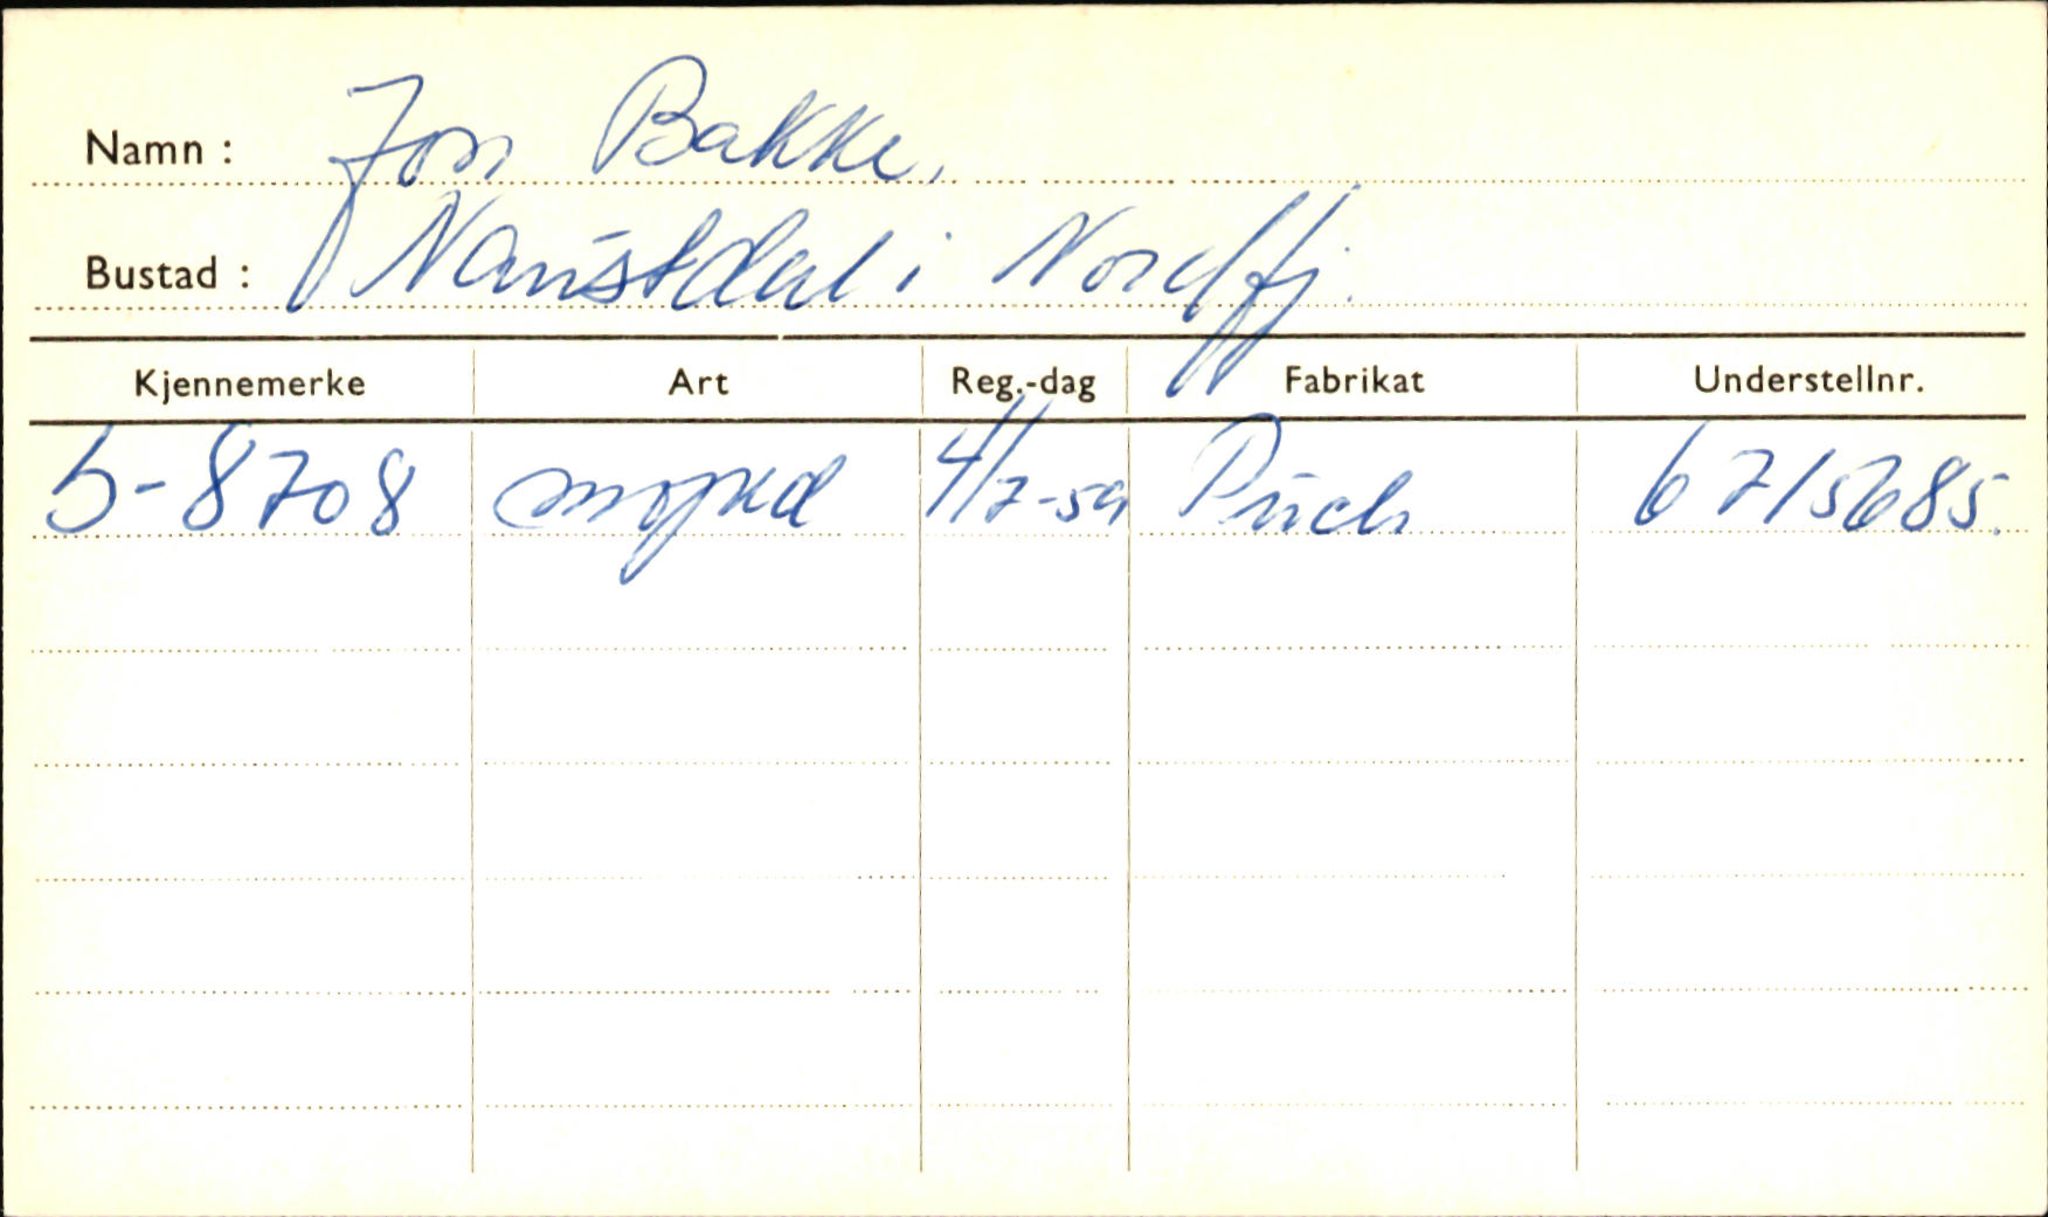 Namn : Jon Bakke,
Bustad : Naustdal i Nordfj.
Kjennemerke Art Reg.-dag Fabrikat Understellnr.
S-8708 moped 4/7-59 Puch 6715685.